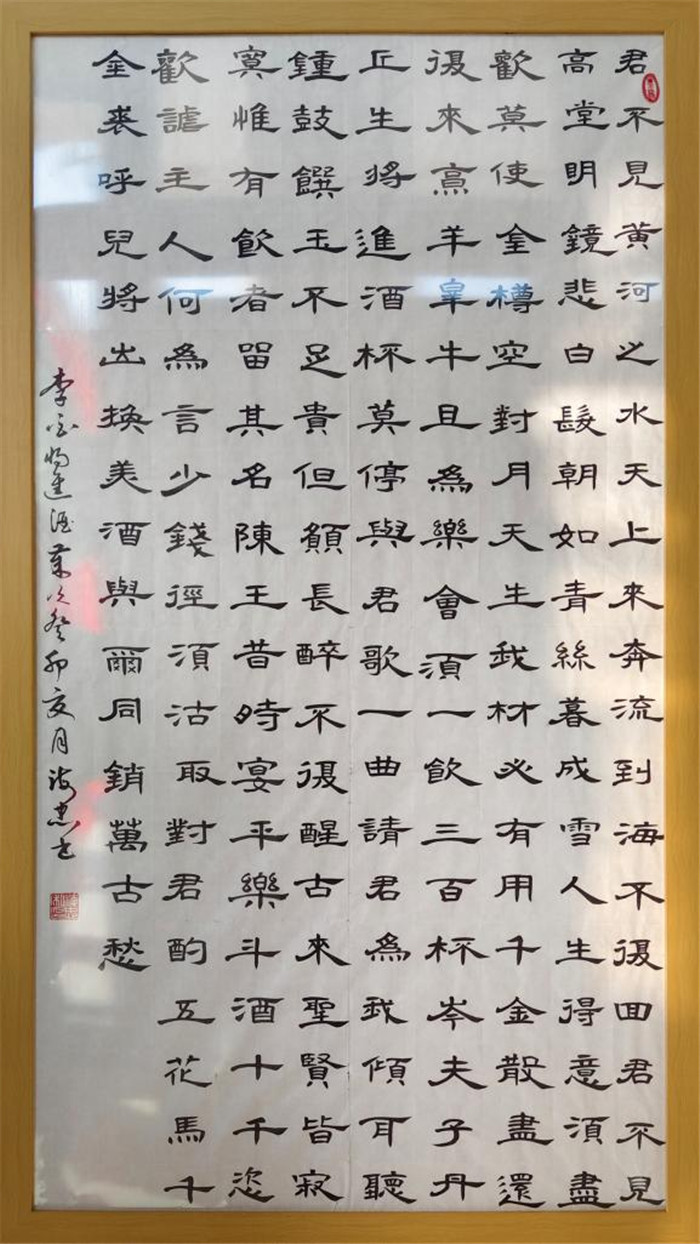 君不見黃河之水天上來奔流到海不復回君不見
高堂明鏡悲白髮朝如青絲暮成雪人生得意須盡
歡莫使金樽空對月天生我材必有用千金散盡還
復來烹羊宰牛且為樂會須一飲三百杯岑夫子丹
丘生將進酒杯莫停與君歌一曲請君為我傾耳聽
鍾鼓饌玉不足貴但願長醉不復醒古來聖賢皆寂
寞惟有飲者留其名陳王昔時宴平樂斗酒十千恣
歡謔主人何為言少錢徑須沽取對君酌五花馬千
金裘呼兒將出換美酒與爾同銷萬古愁
李白將進酒歲次癸卯夏月忠書